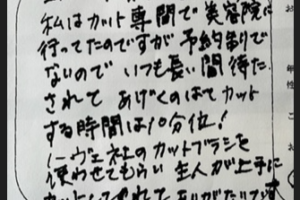 私はカット専門で美容院に
行ってたのですが予約制で
ないので いつも長い間待た
されて あげくのはてカット
する時間は10分位!
ノーヴェ社のカットブラシを
使わせてもらい 主人が上手に
カットしてくれて ありがたいです